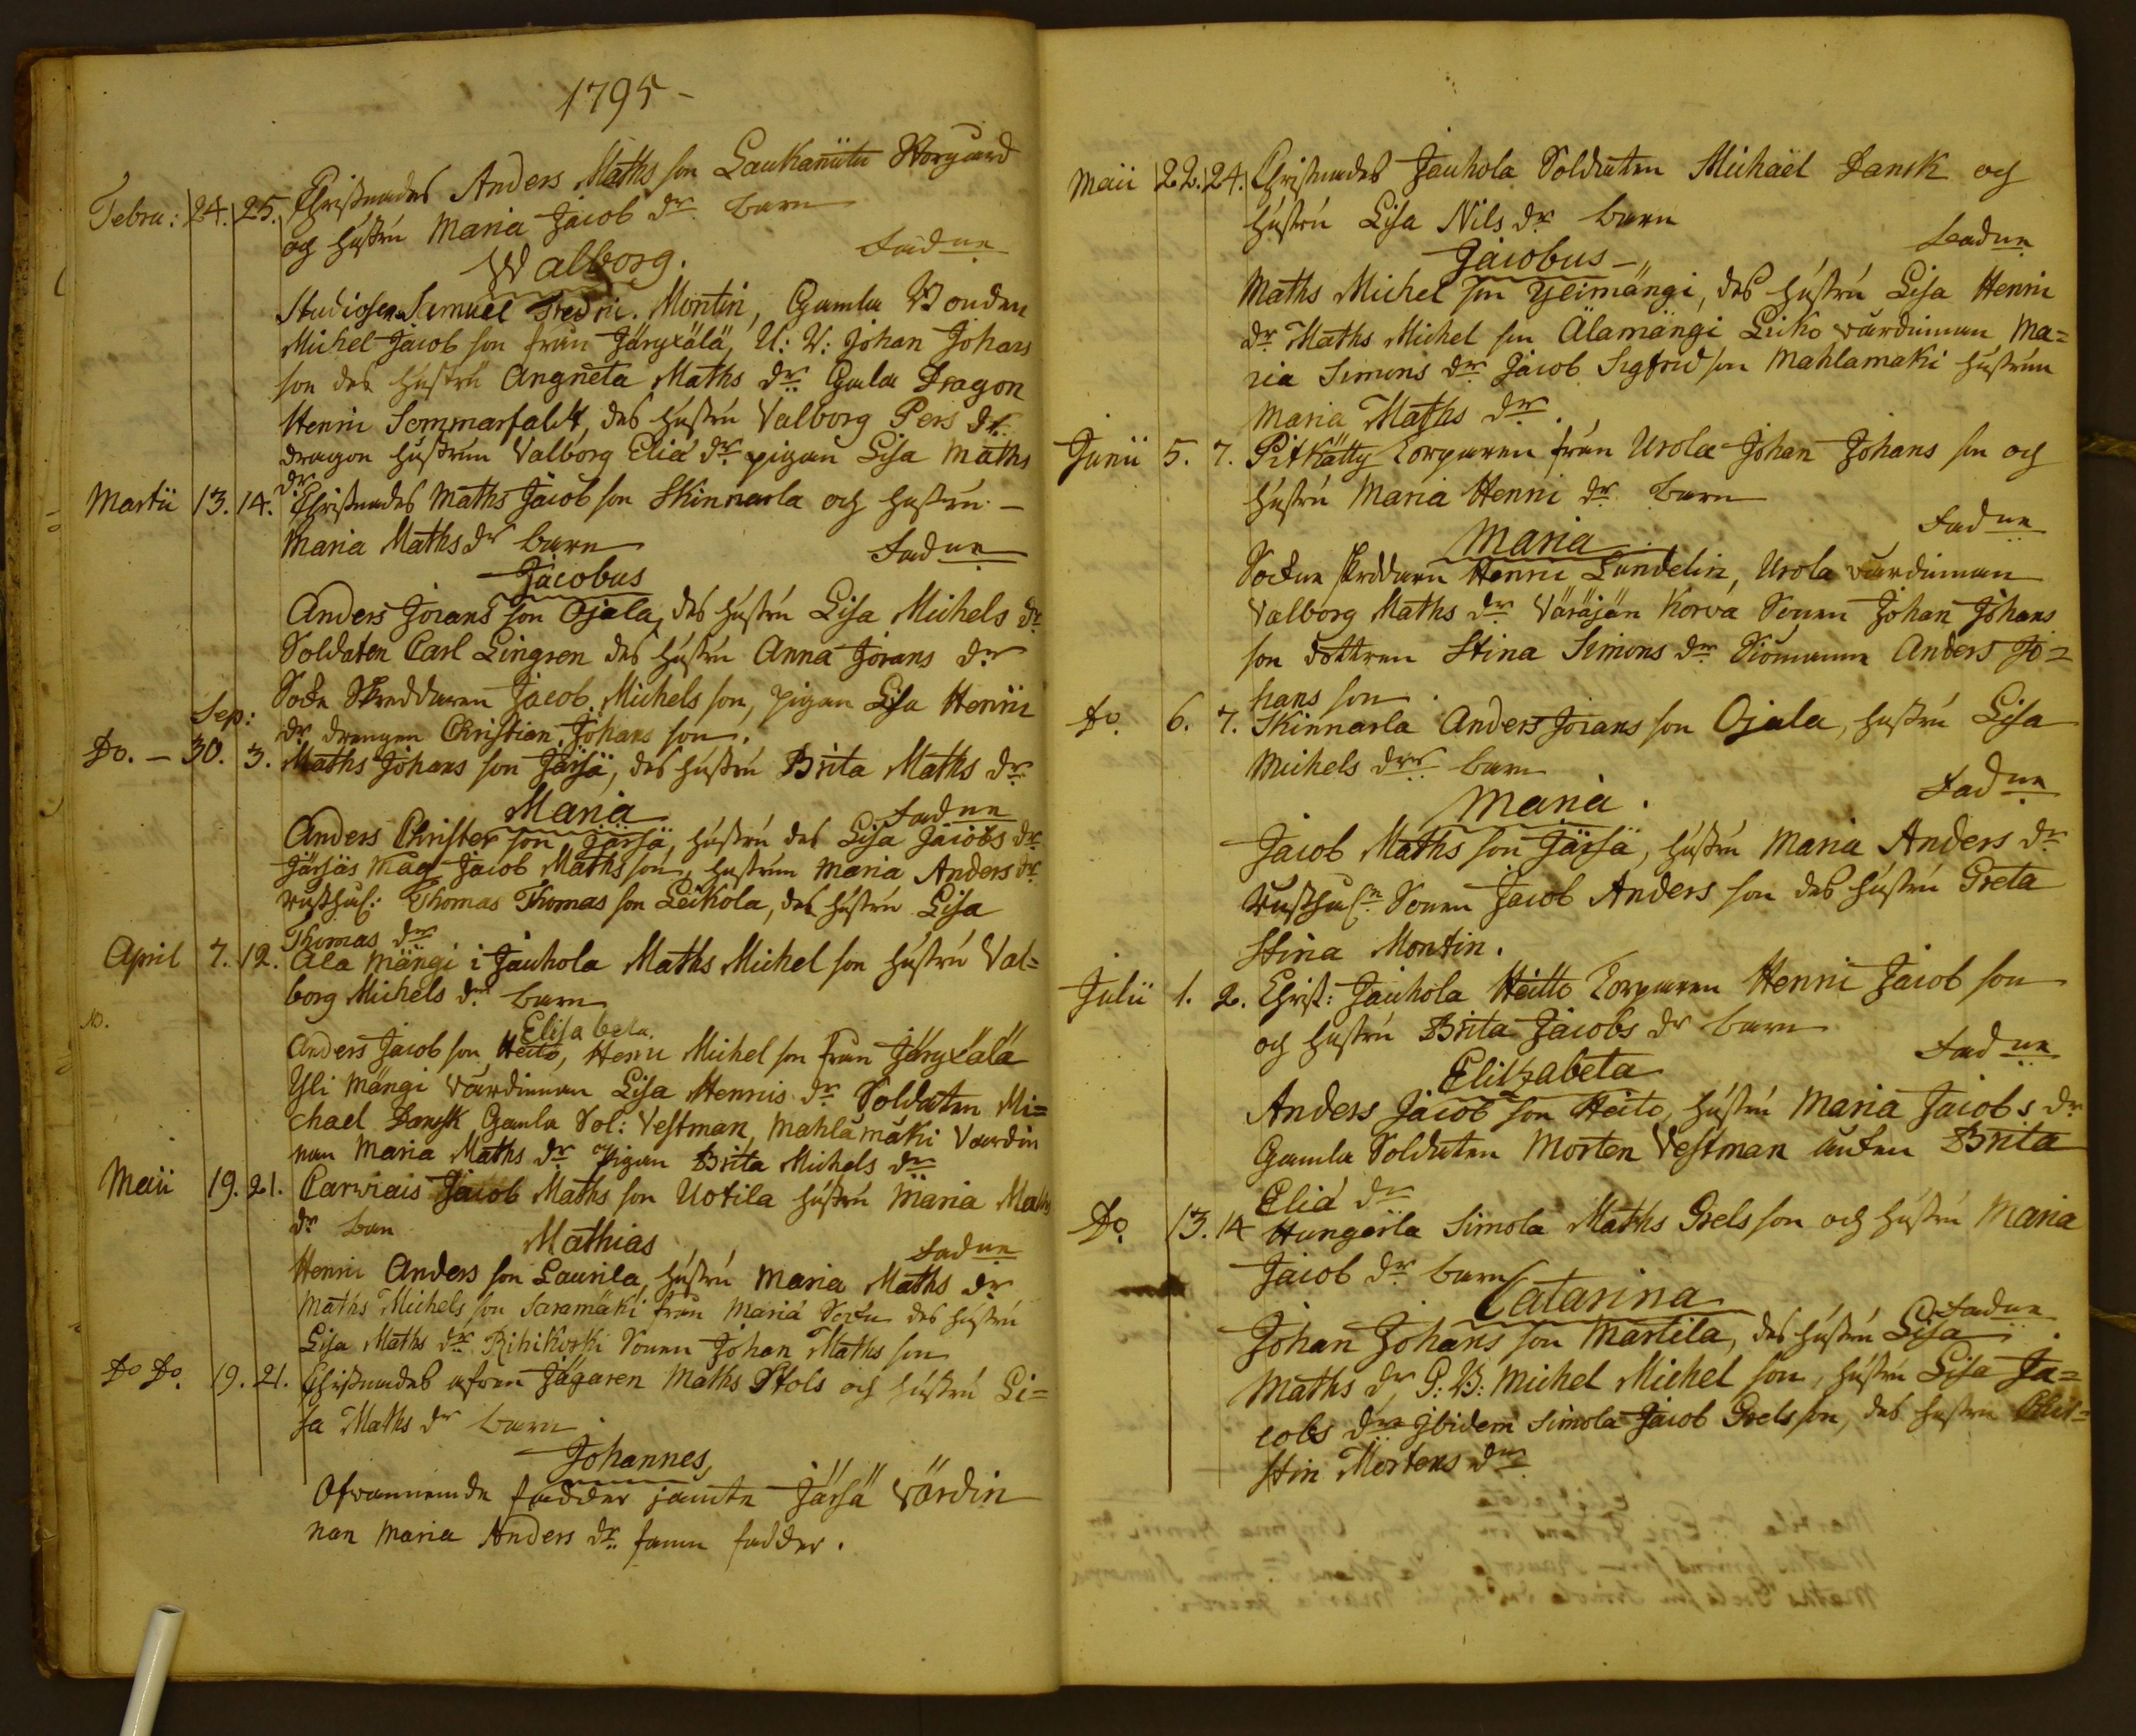 1795 -
Febru: 24. 25. Christnades Anders Maths son Laukanütu
och hustru Maria Jacob dr barn
Walborg. Fadne
Studiosen Samuel Fredric. Montin, Gamla Bonden
Michel Jacob son från Järyxälä, U: V: Johan Johans
son des hustru Angneta Maths dr Gamla Dragon
Henric Sommarfaldt, des hustru Valborg Pers dr
dragon hustrun Valborg Eliæ dr pigan Lisa Maths
dr
Martii 13. 14. Christnades Maths Jacob son Skinnarla och hustru -
Maria Maths dr barn Fadne
Jacobus
Anders Jörans son Ojala, des hustru Lisa Michels dr
Soldaten Carl Lingren des hustru Anna Jörans dr
Sockn Skreddaren Jacob Michels son, pigan Lisa Henric
Sep: dr drengen Christian Johans son.
Do. - 30. 3. Maths Johans son Järsä, des hustru Brita Maths dr
Maria Fadne
Anders Christer son Järsä, hustru des Lisa Jacobs dr
Järsäs Mag Jacob Maths son, hustrun Maria Anders dr
Rusthus: Thomas Thomas son Leikola, des hustru Lisa
Thomas dr
April 7. 12. Ala Mängi i Jauhola Maths Michel son hustru Val=
borg Michels dr barn
Elisabeta
Anders Jacob son Heito, Henric Michel son från Järyxälä
Yli Mängi Värdinnan Lisa Hennis dr Soldaten Mi=
chael Dansk Gamla Sol: Vestman, Mahlamäki Vaardin
nan Maria Maths dr Pigan Brita Michels dr
Maii 19. 21. Carviais Jacob Maths son Uotila hustru Maria Maths
dr barn Mathias Fadne
Henric Anders son Laurila, hustru Maria Maths dr
Maths Michels son Saramäki från Mariæ Sockn des hustru
Lisa Maths dr Rihikoski Sonen Johan Maths son
Do Do. 19. 21. Christnades afven Jägaren Maths Stols och hustru Li=
sa Maths dr barn
Johannes
Ofvannemde fadder jamte Järsä Värdin
nan Maria Anders dr samm fadder.
Maii 22. 24. Christnades Jauhola Soldaten Michaël Dansk och
hustru Lisa Nils dr barn
Jacobus - Fadne
Maths Michel son Ylimängi, des hustru Lisa Henric
dr Maths Michel son Älamängi Leiko värdinnan Ma=
ria Simons dr Jacob Sigfrid son Mahlamaki hustrun
Maria Maths dr.
Junii 5. 7. Pitkätty Torparen från Urola Johan Johans son och
hustru Maria Henric dr barn
Maria Fadne
Sockne skreddaren Henric Lundelin, Urola värdinnan
Valborg Maths dr Väräjän Korva Sonen Johan Johans
son dottren Stina Simons dr Anders Jo=
hans son
Do. 6. 7. Skinnarla Anders Jörans son Ojala, hustru Lisa
Michels dr barn
Maria. Fadne
Jacob Maths son Järsä, hustru Maria Anders dr
Rusthusn Sonen Jacob Anders son des hustru Greta
Stina Montin.
Julii 1. 2. Christ: Jauhola Heitto Torparen Henric Jacob son
och hustru Brita Jacobs dr barn
Elitzabeta Fadne
Anders Jacob son Heito, hustru Maria Jacobs dr
Gamla Soldaten Morten Vestman Brita
Eliæ dr
Do. 13. 14 Hungerla Simola Maths Grels son och hustru Maria
Jacob dr barn
Catarina Fadne
Johan Johans son Martila, des hustru Lisa
Maths dr G: B: Michel Michel son, hustru Lisa Ja=
cobs dr ibidem Simola Jacob Grels son, des hustru Chri=
stin Mortens dr